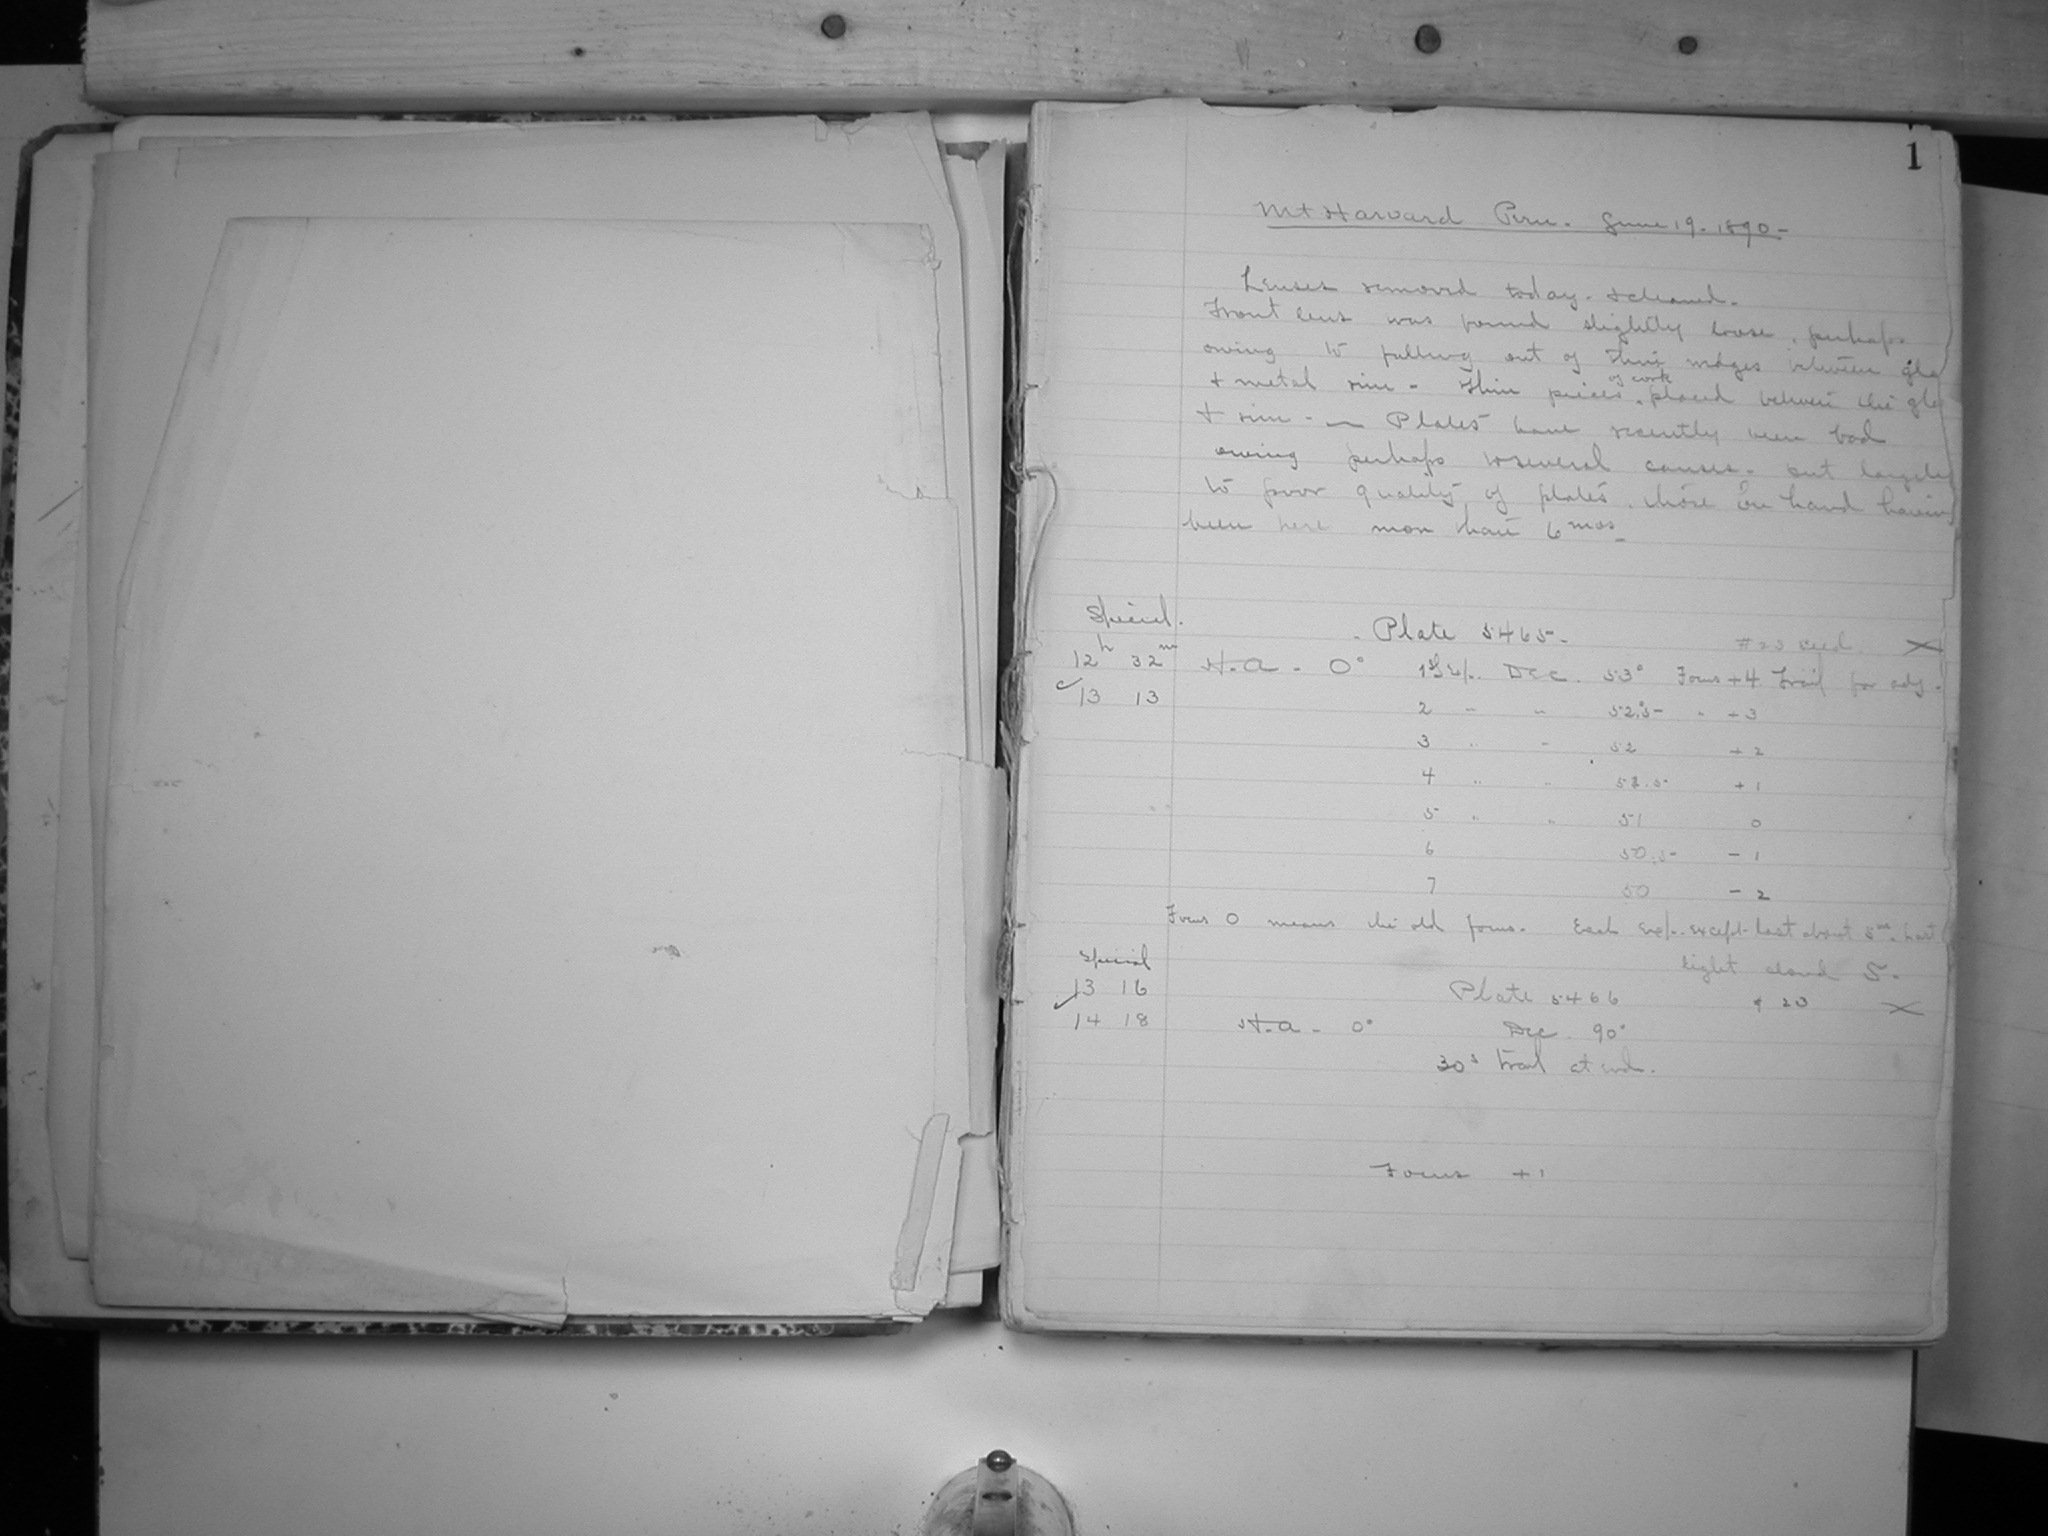 1
Mt Harvard Peru. June 19. 1890 -
Lenses removed today. & cleaned.
Front lens was found slightly loose, perhaps
owing to pulling out of their wedges between gla
& metal rim - Thin pieces of cork placed between the gla
& rim - — Plates have recently been bad
owing perhaps to several causes - but largely
to poor quality of plates, those on hand having
been here more than 6 mos -
Special.
Plate 5465. #23 X
12h 32m H.A. 0° 1st Exp. Dec. 53° Focus +4 Trail for adj.
✓13 13 2 " " 52.5 " +3
3 " " 52 +2
4 " " 5 .5 +1
5 " " 51 0
6 50.5 - 1
7 50 - 2
Focus 0 means the old focus. Each exp. except last about 5m. Last
light cloud 5.
Special
13 16 Plate 5466 23 X
✓14 18 H.A. 0° Dec. 90°
30s trail at end.
Focus +1